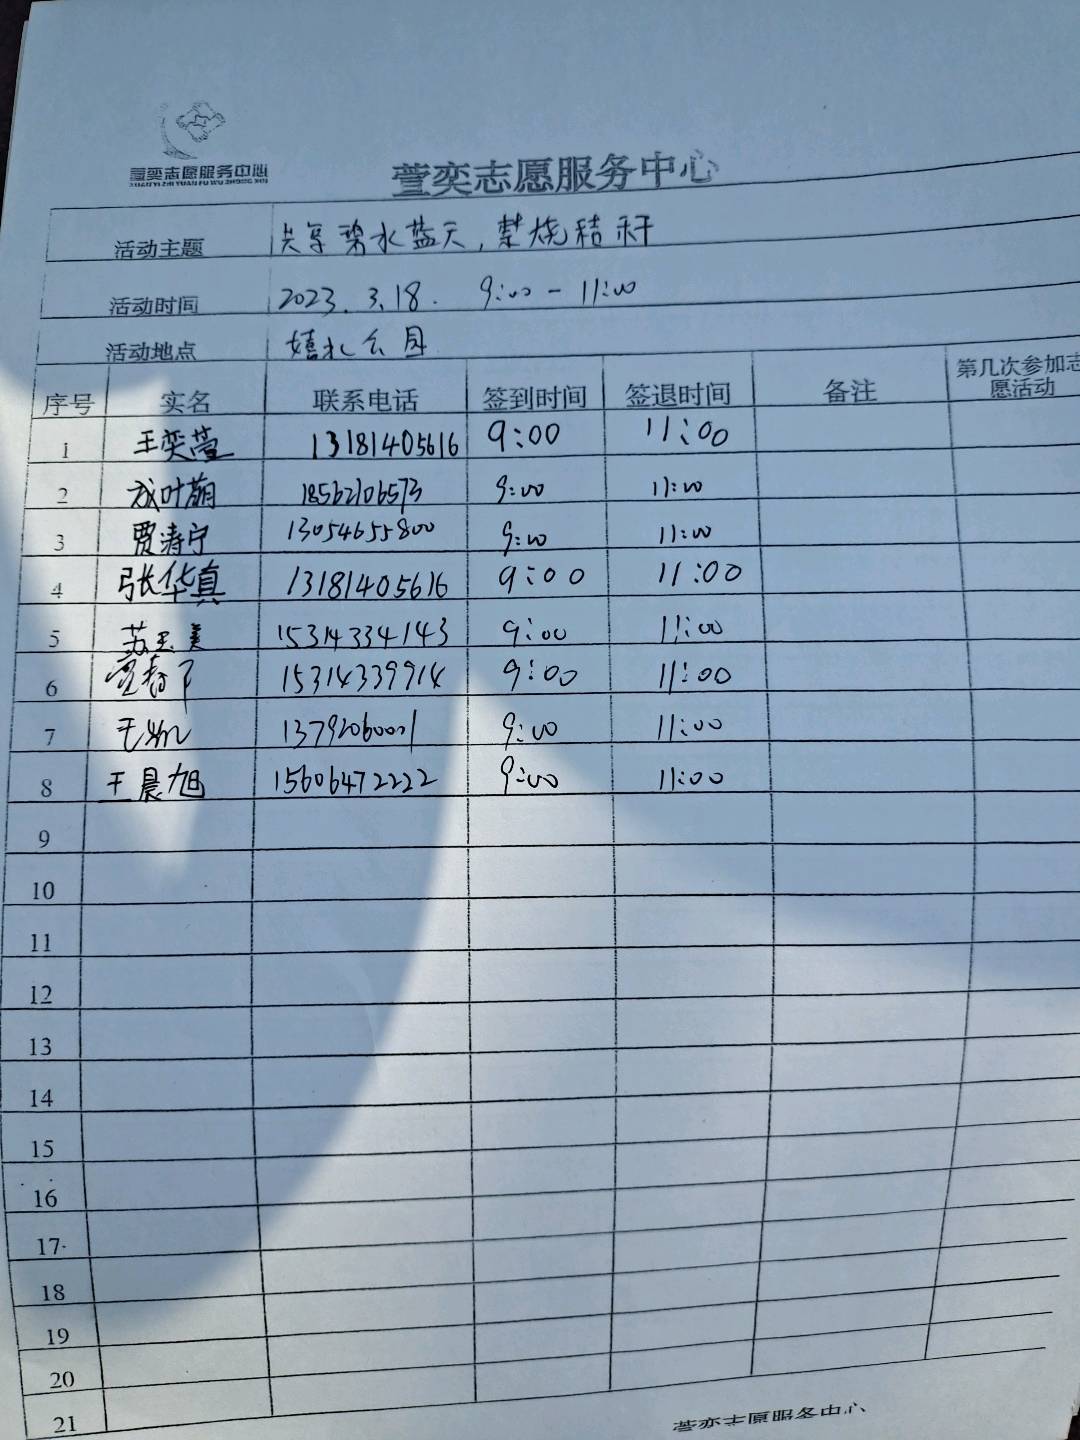 萱奕志愿服务中心
XUANYIZHIYUANFUWUZHONGXIN
萱奕志愿服务中心
活动主题 共享碧水蓝天,禁烧秸秆
活动时间 2023.3.18. 9:00-11:00
活动地点 嬉水公园
序号 实名 联系电话 签到时间 签退时间 备注 第几次参加志愿活动
1 王奕萱 13181405616 9:00 11:00
2 成叶萌 18562106573 9:00 11:00
3 贾涛宁 13054655800 9:00 11:00
4 张华真 13181405616 9:00 11:00
5 苏玉美 15314334143 9:00 11:00
6 15314339914 9:00 11:00
7 13792060001 9:00 11:00
8 王晨旭 15606472222 9:00 11:00
9
10
11
12
13
14
15
16
17
18
19
20
21
萱奕志愿服务中心